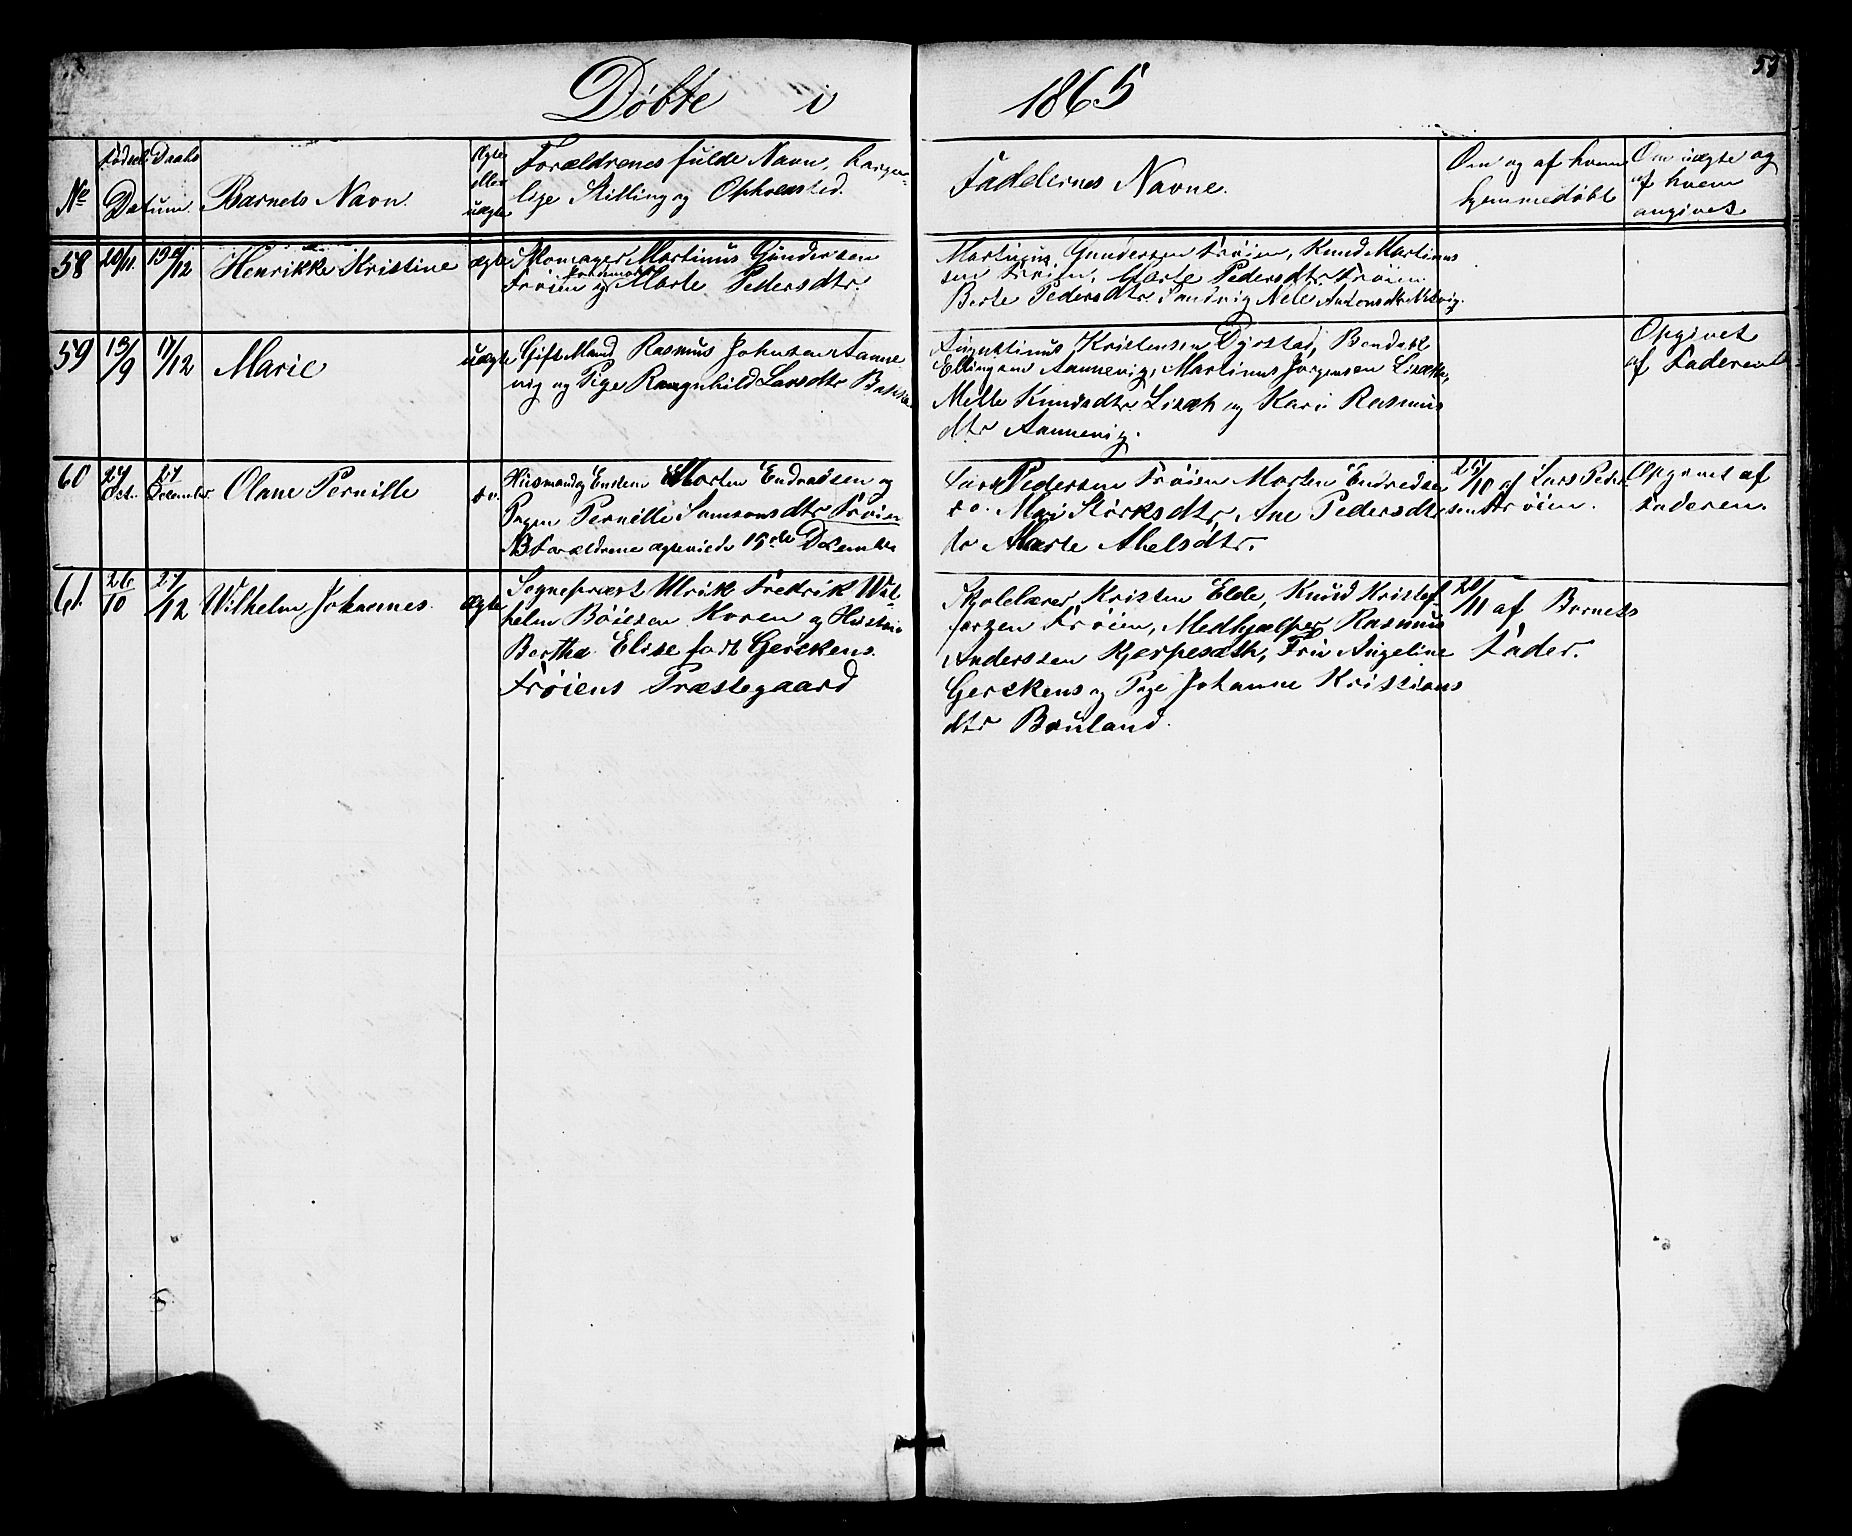 Døbte i 1865
55
No
Fødsels Daabs
Datum.
Barnets Navn.
Ægte
eller
uægte
Forældrenes fulde Navn, borger-
lige Stilling og Opholdssted.
Faddernes Navne.
Om og af hvem
hjemmedøbt
Om uægte og
af hvem
angivet
58 20/11 12 Henrikke Kristine ægte
Skomager Martinus Gundersen
Frøien og Marte Pedersdtr.
Martinus Gundersen Frøien, Knud Martinus
sen Frøien, Marte Pedersdtr Frøien
Berte Pedersdtr Sandvig Nele Antonsdtr
59 13/9 17/12 Marie uægte
Gift Mand Rasmus Johnsen Aanne
vig og Pige Rangnhild Larsdtr
Augustinus Kristensen Dyrstad, Bendikt
Ellingsen Aannevig, Martinus Jørgensen
Mille Knudsdtr og Kari Rasmus
dtr Aannevig.
Opgivet
af Faderen
60 27 Oct. 27 December Olane Pernille do.
Husmand og Enkem Morten Endredsen og
Pigen Pernille Samsonsdtr Frøien
NB Forældrene ægteviede 15de December
Lars Pedersen Frøien Morten Endredsen
do. Mari Størksdtr, Ane Pedersdtr
do Marte Abelsdtr.
25/10 af Lars Peder
sen Frøien.
Opgivet af
Faderen.
61. 26/10 27/12 Wilhelm Johannes. Ægte
Sognepræst Ulrik Fredrik Wil-
helm Bøiesen Koren og Hustru
Bertha Elise født Gerckens.
Frøiens Præstegaard
Skolelærer Kristen Elde, Knud Kristof-
fersen Frøien, Medhjælper Rasmus
Anderssen Kjerpeseth, Fru Angeline
Gerckens og Pige Johanne Kristians
dtr Bruland.
20/11 af Barnets
Fader.